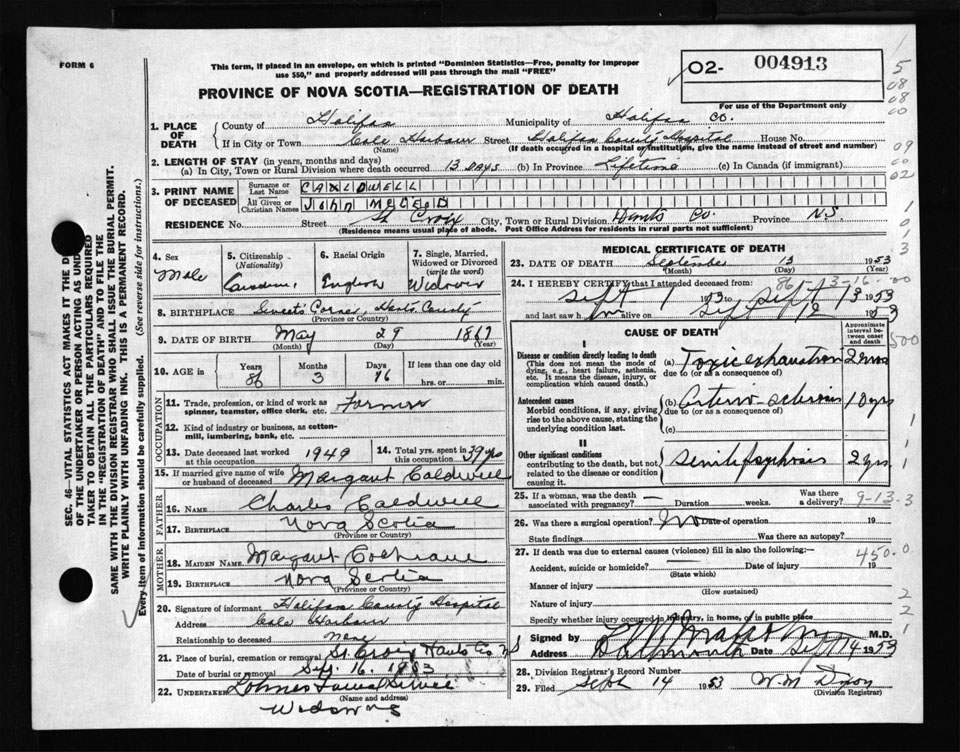 FORM 6
This form, if placed in an envelope, on which is printed "Dominion Statistics—Free, penalty for improper
use $50," and properly addressed will pass through the mail "FREE"
02- 004913
PROVINCE OF NOVA SCOTIA—REGISTRATION OF DEATH
For use of the Department only
1. PLACE OF DEATH
County of Halifax Municipality of Halifax Co.
If in City or Town Cole Harbour Street Halifax County Hospital House No.
(Name) (If death occurred in a hospital or institution, give the name instead of street and number)
2. LENGTH OF STAY (in years, months and days)
(a) In City, Town or Rural Division where death occurred 13 DAYS (b) In Province Lifetime (c) In Canada (if immigrant)
3. PRINT NAME OF DECEASED
Surname or Last Name CALDWELL
All Given or Christian Names JOHN MCLEOD
RESIDENCE No. Street St Croix City, Town or Rural Division Hants Co. Province N.S.
(Residence means usual place of abode. Post Office Address for residents in rural parts not sufficient)
4. Sex Male
5. Citizenship (Nationality)
6. Racial Origin English
7. Single, Married, Widowed or Divorced (write the word) Widower
8. BIRTHPLACE Sweets Corner, Hants County
(Province or Country)
9. DATE OF BIRTH May 29 1867
(Month) (Day) (Year)
10. AGE in Years 86 Months 3 Days 16 If less than one day old
hrs. or min.
OCCUPATION
11. Trade, profession, or kind of work as spinner, teamster, office clerk, etc. Farmer
12. Kind of industry or business, as cotton-mill, lumbering, bank, etc.
13. Date deceased last worked at this occupation 1949
14. Total yrs. spent in this occupation 39 yrs
15. If married give name of wife or husband of deceased Margaret Caldwell
FATHER
16. NAME Charles Caldwell
17. BIRTHPLACE Nova Scotia
(Province or Country)
MOTHER
18. MAIDEN NAME Margaret Cochrane
19. BIRTHPLACE Nova Scotia
(Province or Country)
20. Signature of informant Halifax County Hospital
Address Cole Harbour
Relationship to deceased None
21. Place of burial, cremation or removal St. Croix Hants Co. N S
Date of burial or removal Sep. 16. 1953
22. UNDERTAKER
(Name and address)
MEDICAL CERTIFICATE OF DEATH
23. DATE OF DEATH September 13 1953
(Month) (Day) (Year)
86-3-16
24. I HEREBY CERTIFY that I attended deceased from:
Sept 1 1953 to Sept 13 1953
and last saw him alive on Sept 12 1953
CAUSE OF DEATH
Approximate interval between onset and death
I
Disease or condition directly leading to death
(This does not mean the mode of dying, e.g., heart failure, asthenia, etc. It means the disease, injury, or complication which caused death.)
(a) Toxic exhaustion 2 mos
due to (or as a consequence of)
Antecedent causes
Morbid conditions, if any, giving rise to the above cause, stating the underlying condition last.
(b) Arterio-sclerosis 10 yrs
due to (or as a consequence of)
(c)
II
Other significant conditions
contributing to the death, but not related to the disease or condition causing it.
Senile psychosis 2 yrs
25. If a woman, was the death associated with pregnancy? — Duration weeks. Was there a delivery?
9-13-3
26. Was there a surgical operation? No Date of operation 19
State findings Was there an autopsy?
27. If death was due to external causes (violence) fill in also the following:—
450.0
Accident, suicide or homicide? Date of injury 19
(State which)
Manner of injury
(How sustained)
Nature of injury
Specify whether injury occurred in industry, in home, or in public place
Signed by M.D.
Address Dartmouth Date Sept 14 1953
28. Division Registrar's Record Number
29. Filed Sept 14 1953 W. M. Dixon
(Division Registrar)
SEC. 46—VITAL STATISTICS ACT MAKES IT THE
OF THE UNDERTAKER OR PERSON ACTING AS
TAKER TO OBTAIN ALL THE PARTICULARS REQUIRED
IN THE "REGISTRATION OF DEATH" AND TO FILE THE
SAME WITH THE DIVISION REGISTRAR WHO SHALL ISSUE THE BURIAL PERMIT.
WRITE PLAINLY WITH UNFADING INK. THIS IS A PERMANENT RECORD.
Every item of information should be carefully supplied. (See reverse side for instructions.)